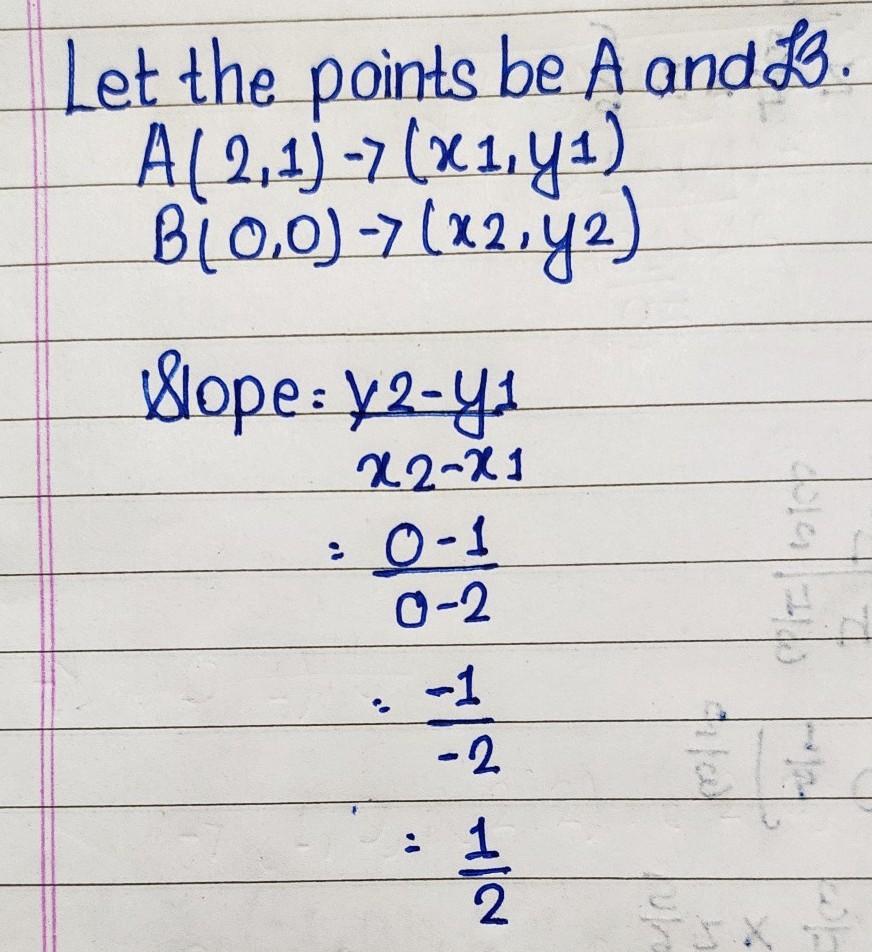 Let the points be A and B.
A(2,1)->(x1,y1)
B(0,0)->(x2,y2)
Slope=y2-y1
x2-x1
= 0-1
0-2
= -1
-2
= 1
2